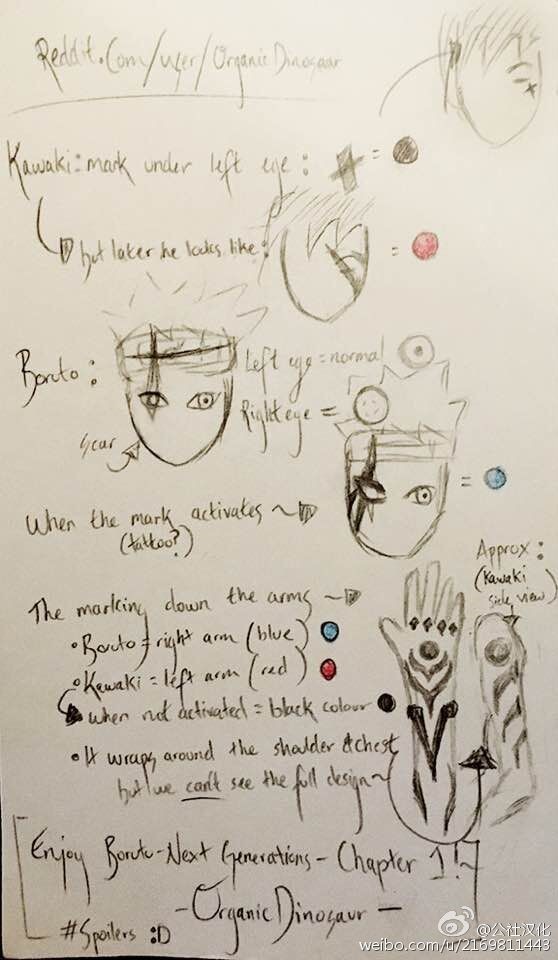 Reddit.Com/user/OrganicDinosaur
Kawaki: mark under left eye: =
but later he looks like: =
Boruto:
Left eye = normal
Right eye =
scar
=
When the mark activates
(tattoo?)
Approx:
(Kawaki
side view)
The marking down the arms
• Boruto = right arm (blue)
• Kawaki = left arm (red)
when not activated = black colour
• It wraps around the shoulder & chest
but we can't see the full design
Enjoy Boruto-Next Generations - Chapter 1!
- OrganicDinosaur -
#Spoilers :D
@公社汉化
weibo.com/u/2169811443